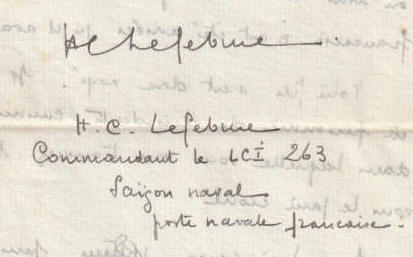 HC Lefebvre
H. C. Lefebvre
Commandant le LCI 263
Saïgon naval
poste navale française.